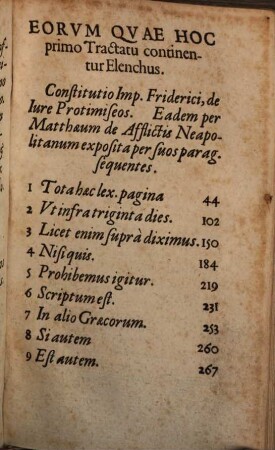 EORVM QVAE HOC
primo Tractatu continen-
tur Elenchus.
Constitutio Imp. Friderici, de
Iure Protimiseos. Eadem per
Matthæum de Afflictis Neapo-
litanum exposita per suos parag.
sequentes.
1 Tota hæc lex. pagina 44
2 Vt infra triginta dies. 102
3 Licet enim suprà diximus. 150
4 Nisi quis. 184
5 Prohibemus igitur. 219
6 Scriptum est. 231
7 In alio Græcorum. 253
8 Si autem 260
9 Est autem. 267